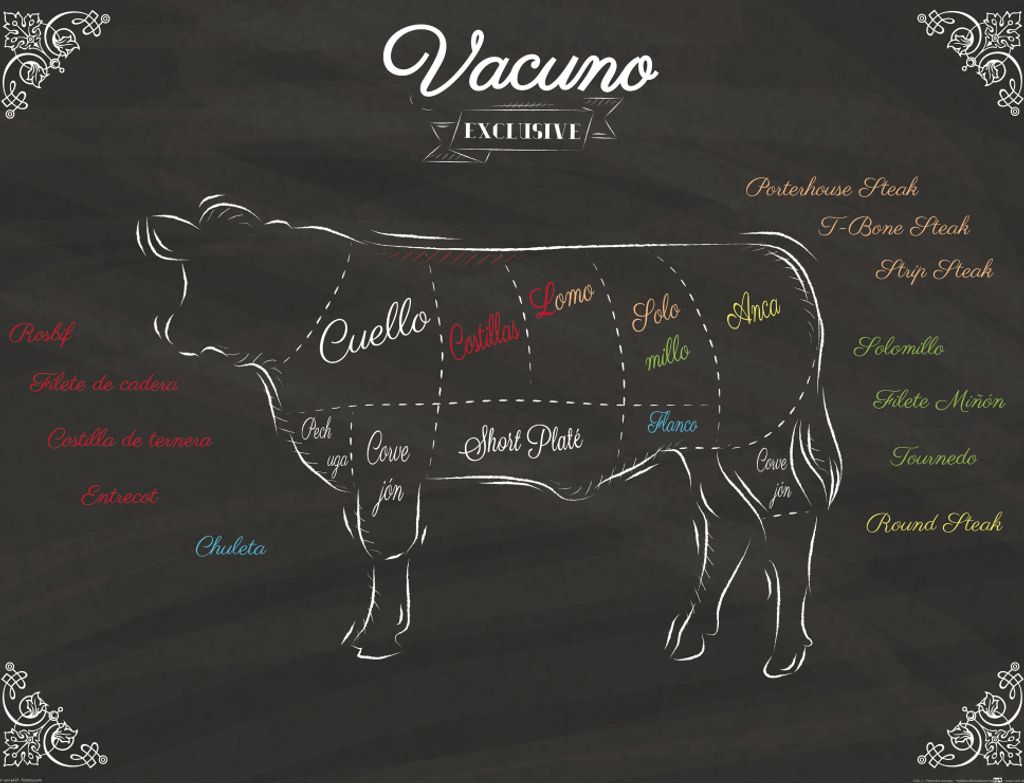 Vacuno
EXCLUSIVE
Porterhouse Steak
T-Bone Steak
Strip Steak
Lomo
Solo
millo
Anca
Cuello
Costillas
Rosbif
Filete de cadera
Costilla de ternera
Entrecot
Chuleta
Solomillo
Filete Miñón
Tournedo
Round Steak
Pech
uga
Corve
jón
Short Platé
Flanco
Corve
jón